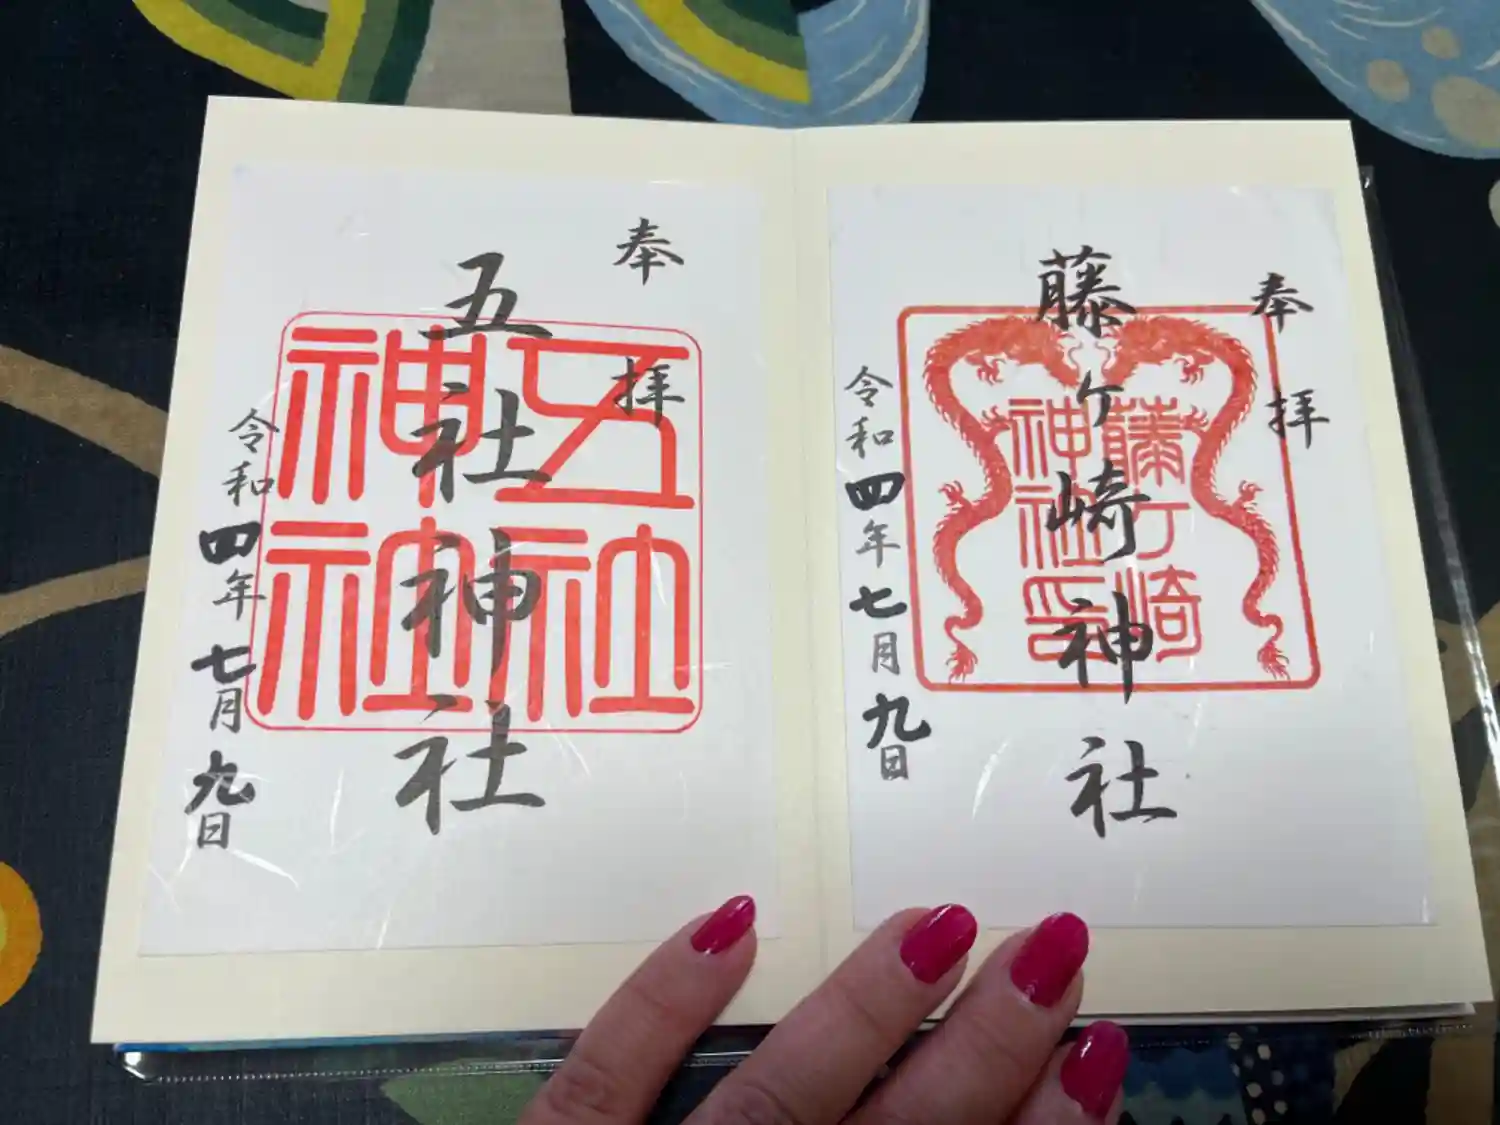 奉拝
藤ヶ崎神社
藤ヶ崎
神社印
令和四年七月九日
奉拝
五社神社
五社
神社
令和四年七月九日